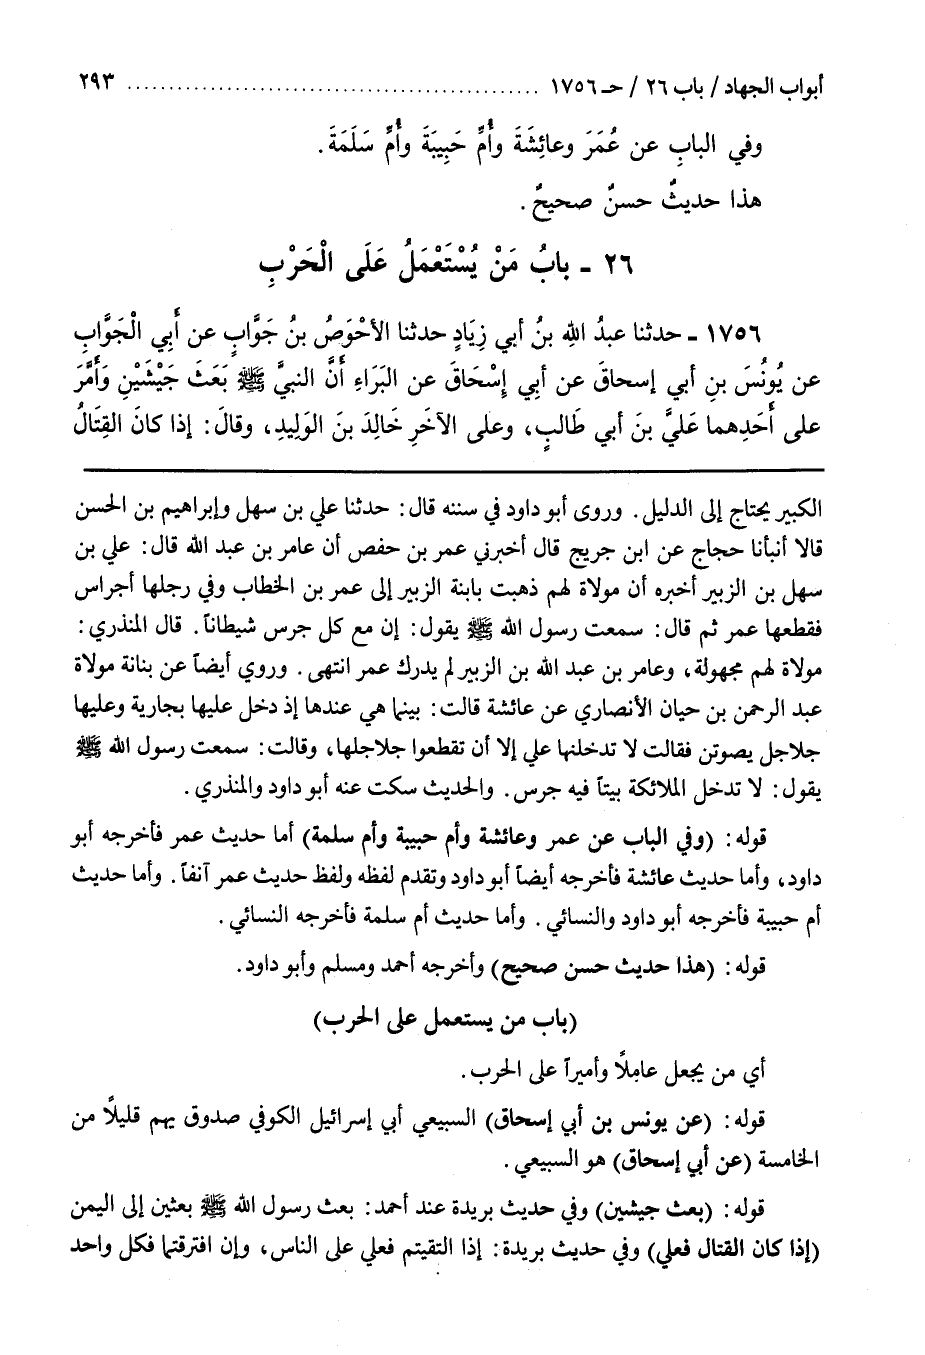 أبواب الجهاد / باب ٢٦ / حـ ١٧٥٦ ................................................ ٢٩٣
وفي البابِ عن عُمَرَ وعائِشَةَ وأُمِّ حَبِيبَةَ وأُمِّ سَلَمَةَ.
هذا حديثٌ حسنٌ صحيحٌ.
٢٦ - بابُ مَنْ يُسْتَعْمَلُ عَلَى الْحَرْبِ
١٧٥٦ - حدثنا عبدُ اللهِ بنُ أبي زِيَادٍ حدثنا الأحْوَصُ بنُ جَوَّابٍ عن أَبِي الْجَوَّابِ
عن يُونُسَ بنِ أبي إسحاقَ عن أبي إسْحَاقَ عن البَرَاءِ أَنَّ النبيَّ ﷺ بَعَثَ جَيْشَيْنِ وَأَمَّرَ
على أَحَدِهما عَلَيَّ بنَ أبي طَالبٍ، وعلى الآخَرِ خَالِدَ بنَ الوَلِيدِ، وقالَ: إذا كانَ القِتَالُ
الكبير يحتاج إلى الدليل. وروى أبو داود في سننه قال: حدثنا علي بن سهل وإبراهيم بن الحسن
قالا أنبأنا حجاج عن ابن جريج قال أخبرني عمر بن حفص أن عامر بن عبد الله قال: علي بن
سهل بن الزبير أخبره أن مولاة لهم ذهبت بابنة الزبير إلى عمر بن الخطاب وفي رجلها أجراس
فقطعها عمر ثم قال: سمعت رسول الله ﷺ يقول: إن مع كل جرس شيطاناً. قال المنذري:
مولاة لهم مجهولة، وعامر بن عبد الله بن الزبير لم يدرك عمر انتهى. وروي أيضاً عن بنانة مولاة
عبد الرحمن بن حيان الأنصاري عن عائشة قالت: بينما هي عندها إذ دخل عليها بجارية وعليها
جلاجل يصوتن فقالت لا تدخلنها علي إلا أن تقطعوا جلاجلها، وقالت: سمعت رسول الله ﷺ
يقول: لا تدخل الملائكة بيتاً فيه جرس. والحديث سكت عنه أبو داود والمنذري.
قوله: (وفي الباب عن عمر وعائشة وأم حبيبة وأم سلمة) أما حديث عمر فأخرجه أبو
داود، وأما حديث عائشة فأخرجه أيضاً أبو داود وتقدم لفظه ولفظ حديث عمر آنفاً. وأما حديث
أم حبيبة فأخرجه أبو داود والنسائي. وأما حديث أم سلمة فأخرجه النسائي.
قوله: (هذا حديث حسن صحيح) وأخرجه أحمد ومسلم وأبو داود.
(باب من يستعمل على الحرب)
أي من يجعل عاملًا وأميراً على الحرب.
قوله: (عن يونس بن أبي إسحاق) السبيعي أبي إسرائيل الكوفي صدوق يهم قليلًا من
الخامسة (عن أبي إسحاق) هو السبيعي.
قوله: (بعث جيشين) وفي حديث بريدة عند أحمد: بعث رسول الله ﷺ بعثين إلى اليمن
(إذا كان القتال فعلي) وفي حديث بريدة: إذا التقيتم فعلي على الناس، وإن افترقتما فكل واحد